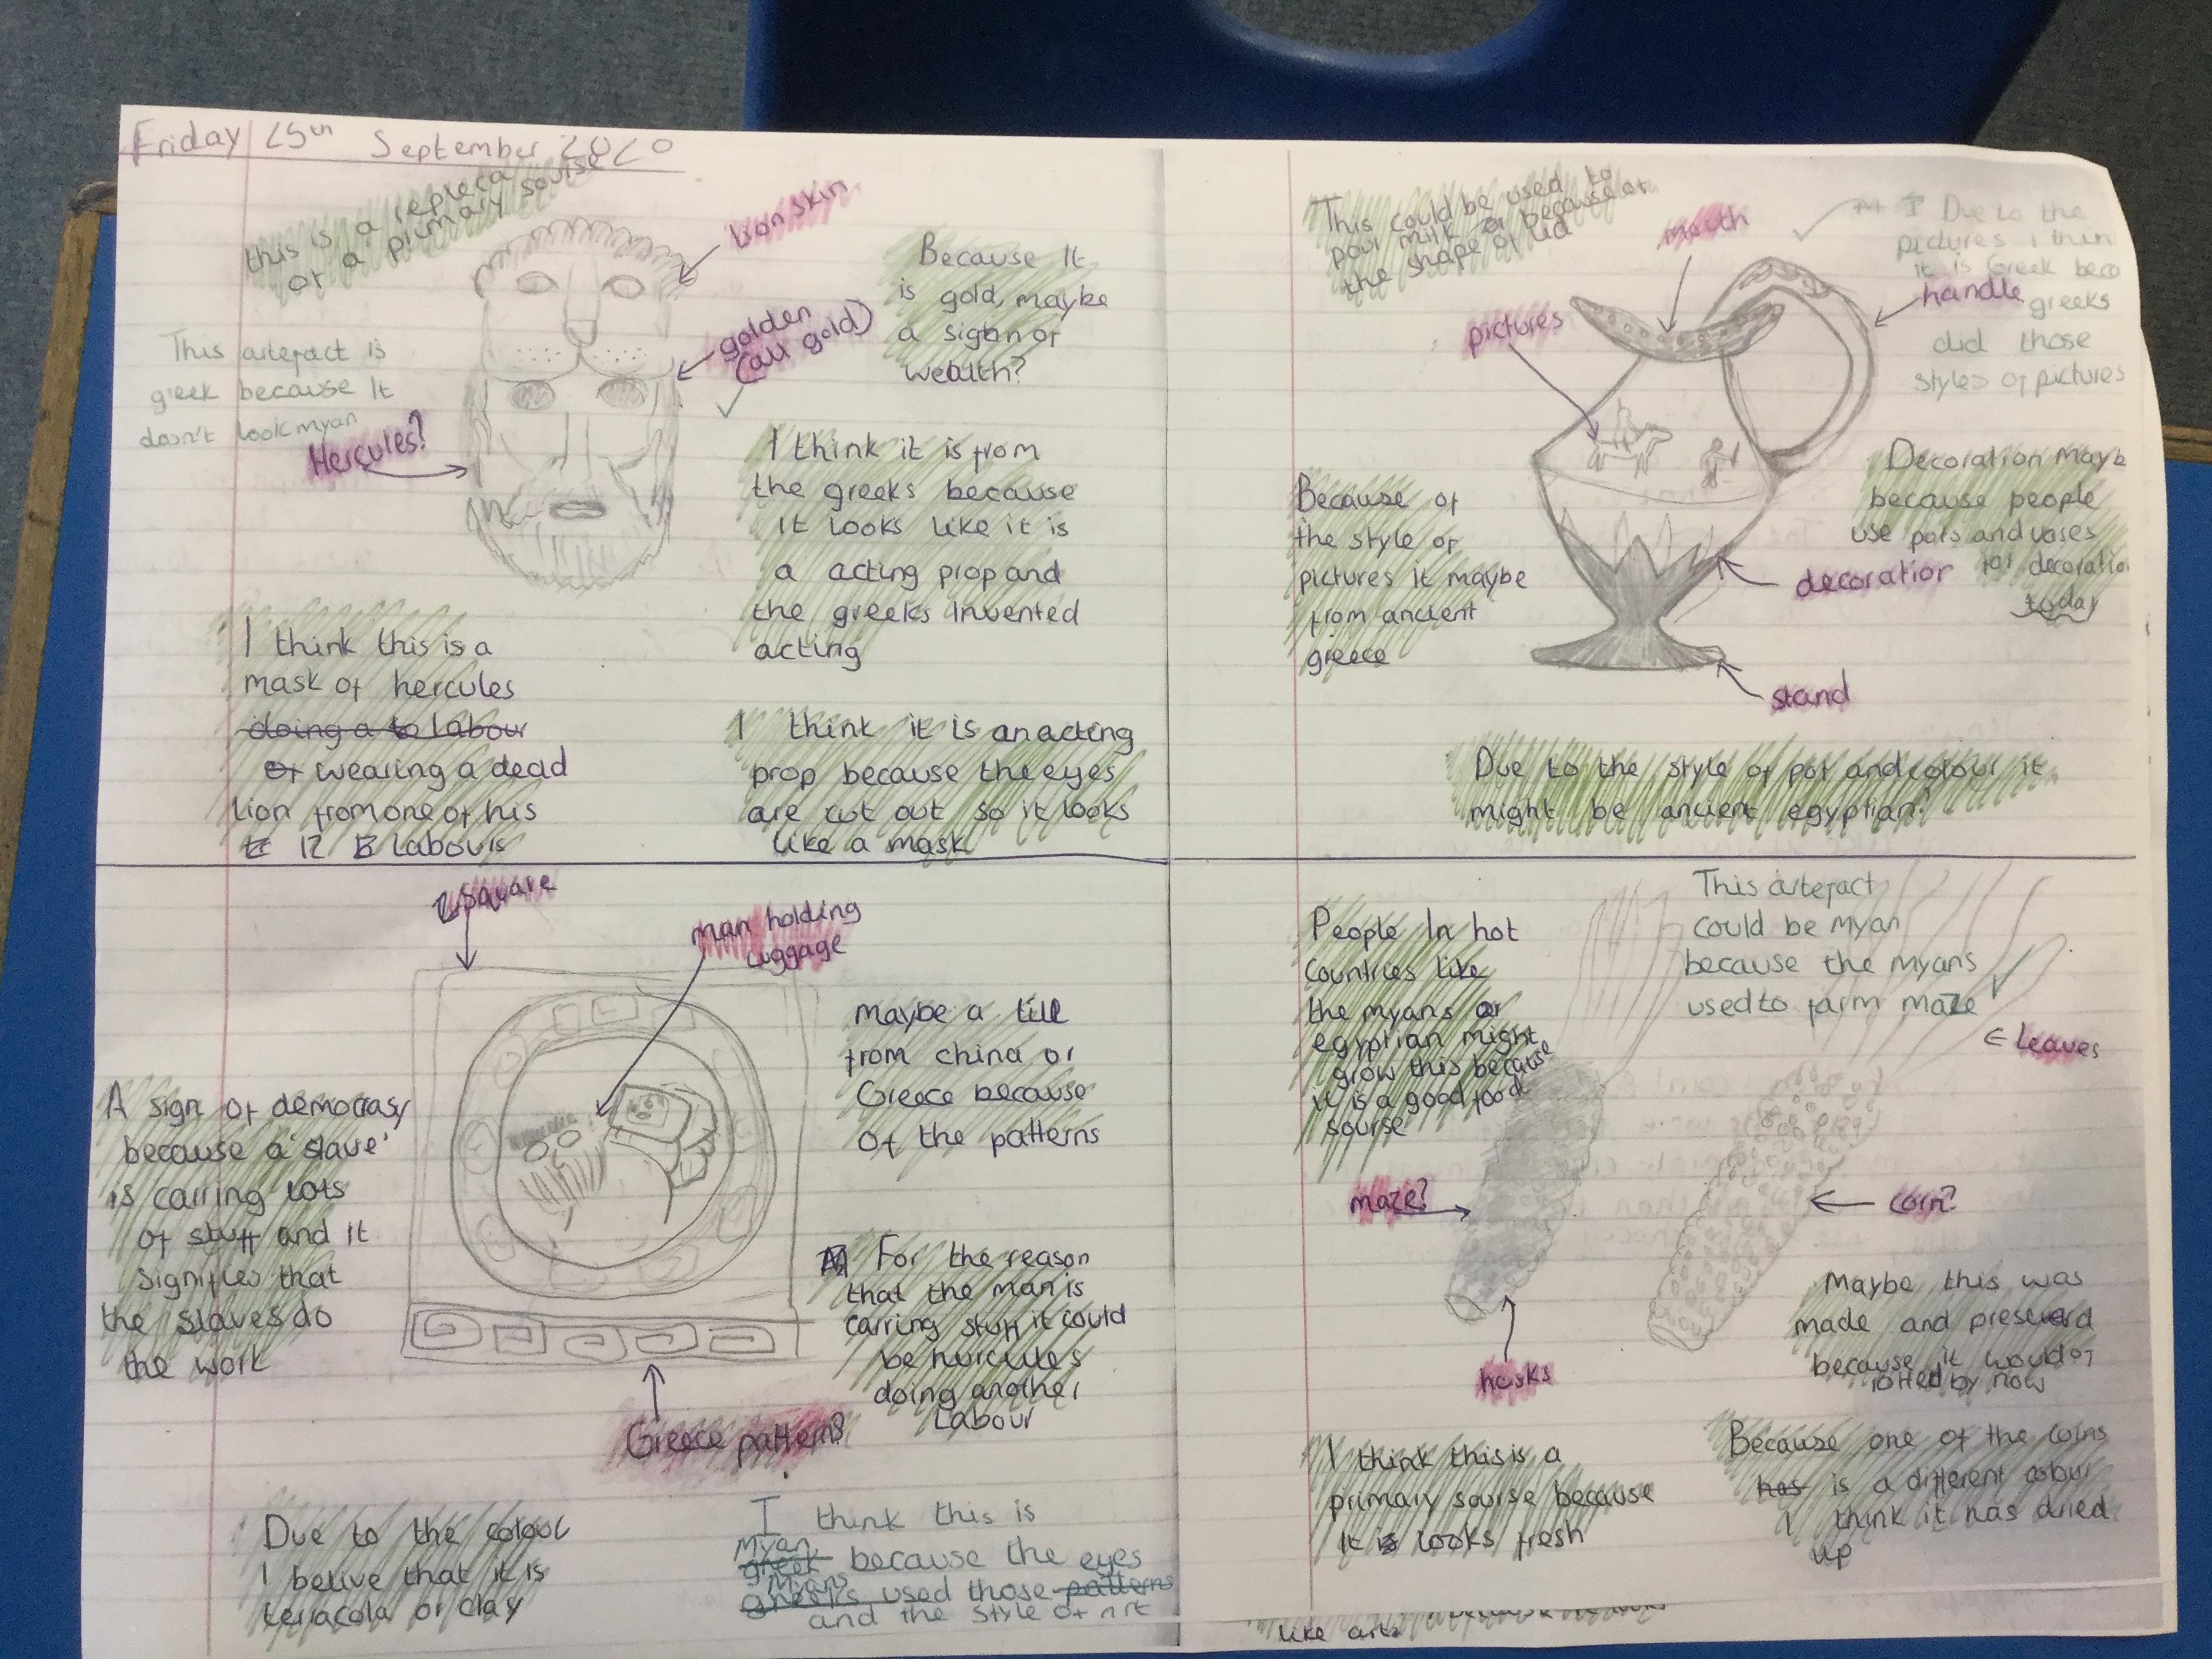 Friday 25th September 2020
this is a repleca
of a primary sourse
Lion skin
Because It
is gold, maybe
a sign of
wealth?
golden
(all gold)
This artefact is
greek because It
dosn't look myan
Hercules?
I think it is from
the greeks because
It looks like it is
a acting prop and
the greeks invented
acting
I think this is a
mask of hercules
doing a to labour
Of wearing a dead
lion from one of his
12 Labours
I think it is an acting
prop because the eyes
are cut out so it looks
like a mask
This could be used to
pour milk because of
the shape of lid
mouth
Due to the
pictures I thin
it is Greek beca
greeks
did those
styles of pictures
handle
pictures
Because of
the style of
pictures it maybe
from ancient
greece
Decoration Mayb
because people
use pots and vases
for decoratio
today
decoration
stand
Due to the style of pot and colour it
might be ancient egyptian?
Square
man holding
luggage
maybe a till
from china or
Greece because
Of the patterns
A sign of democrasy
because a 'slave'
is carring lots
of stuff and it
signifies that
the slaves do
the work
For the reason
that the man is
carring stuff it could
be hurcules
doing another
Labour
Greece patterns?
Due to the colour
I belive that it is
terracota or clay
I think this is
Myan
greek because the eyes
Myans
greeks used those patterns
and the style of art
People In hot
Countries like
the myans or
egyptian might
grow this because
it is a good food
sourse
This artefact
could be Myan
because the myans
used to farm maze
← Leaves
maze?
corn?
husks
Maybe this was
made and preserved
because it would of
rotted by now
I think this is a
primary sourse because
It is looks fresh
Because one of the corns
has is a different colour
I think it has dried
up
like